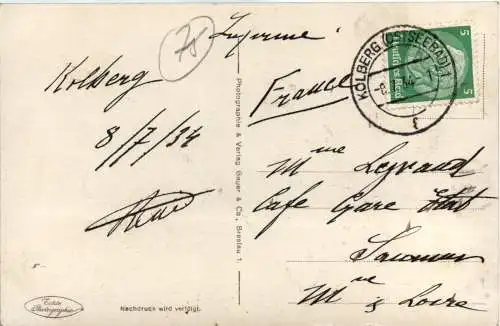 75
Kolberg
8/7/34
France
Mme Legrand
Café Gare Etat
Saumur
Mne & Loire
KOLBERG (OSTSEEBAD)
5
5
Deutsches Reich
Photographie & Verlag Gauer & Co., Breslau 1.
Echte
Photographie
Nachdruck wird verfolgt.